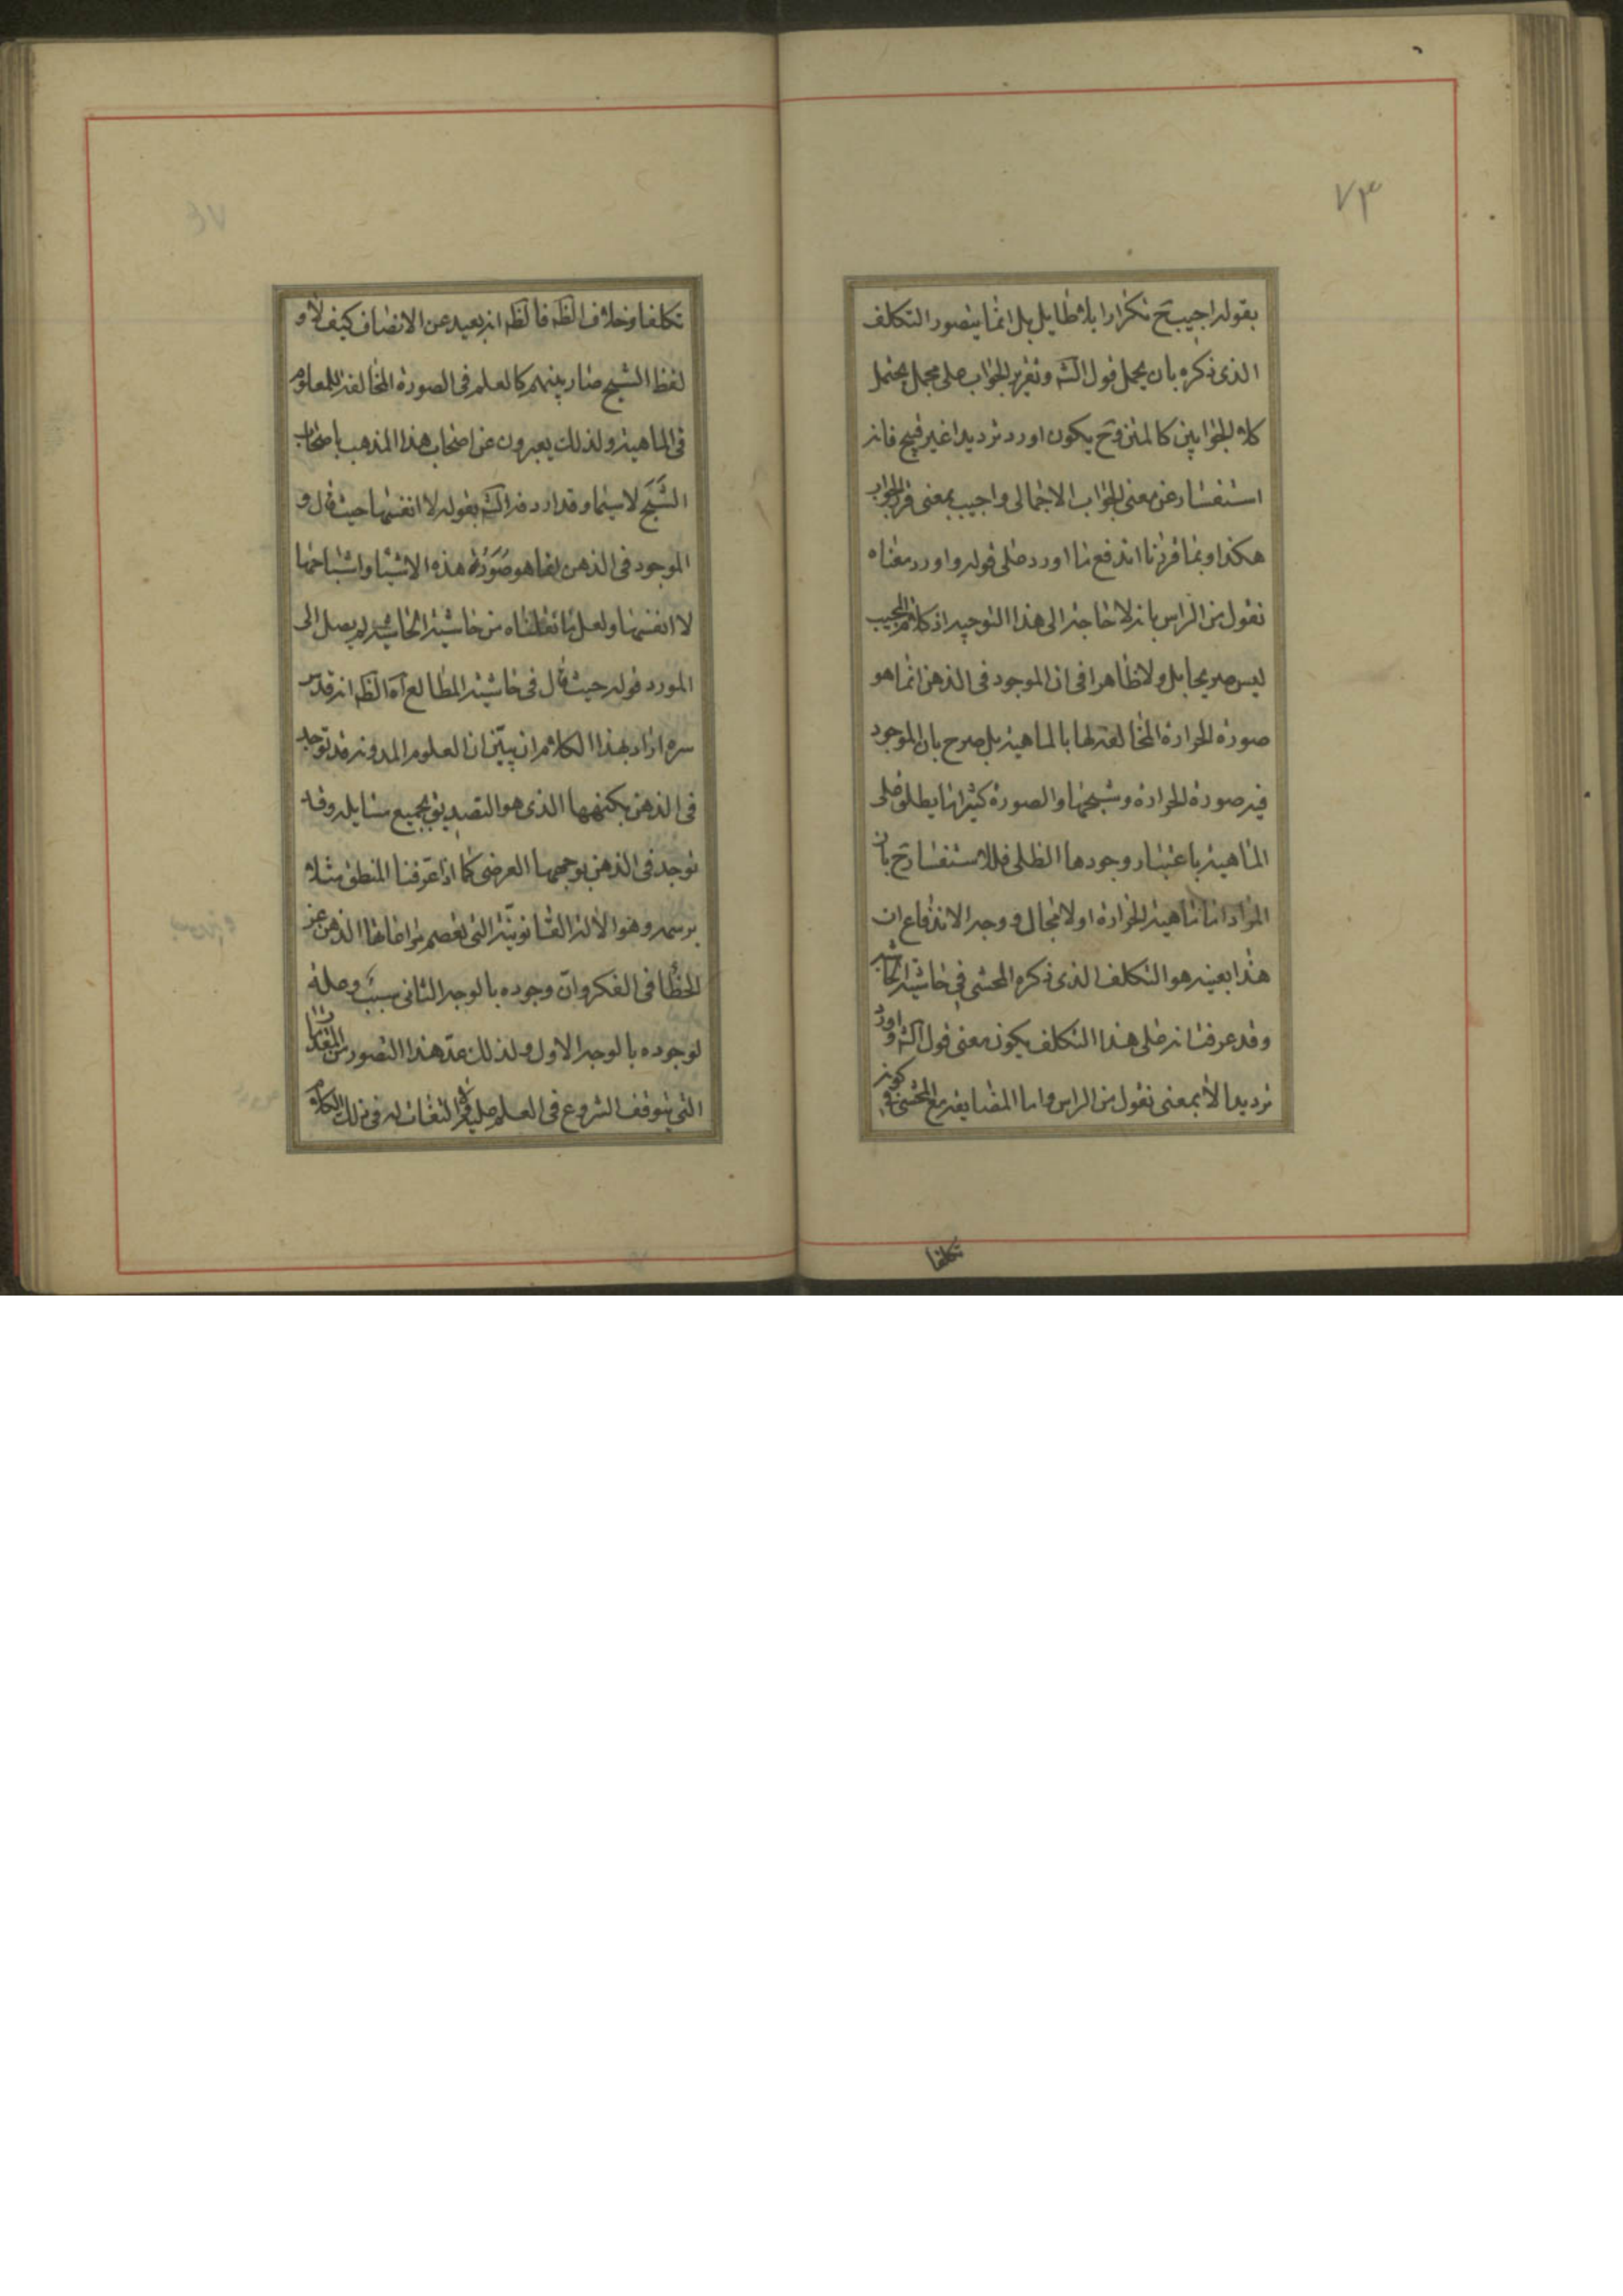 ٧٣
بقوله اجيب ح تكرارا بلا طايل بل انما يتصور التكلف
الذى ذكره بان يحمل قول الشه وتقرير الجواب على مجمل يحتمل
كلا الجوابين كالمتن وح يكون اورد ترديدا غير قبيح فانه
استفسار عن معنى الجواب الاجمالى واجيب بمعنى قرر الجواب
هكذا وبما قررنا اندفع ما اورد على قوله واورد معناه
نقول من الراس بانه لا حاجة الى هذا التوجيه اذ كلام المجيب
ليس صريحا بل ولا ظاهرا فى ان الموجود فى الذهن انما هو
صورة الحرارة المخالفة لها بالماهية بل صرح بان الموجود
فيه صورة الحرارة وشبحها والصورة كثيرا ما يطلق على
الماهية باعتبار وجودها الظلى فللاستفسار ح بان
المراد اما ماهية الحرارة او لا مجال ووجه الاندفاع ان
هذا بعينه هو التكلف الذى ذكره المحشى فى حاشية الحاشية
وقد عرفت انه على هذا التكلف يكون معنى قول الشه واورد
ترديدا لا بمعنى نقول من الراس واما المضايقة مع المحشى فى كونه
تكلفا
تكلفا وخلاف الظه فالظه انه بعيد عن الانصاف كيف لا و
لفظ الشبح صار بينهم كالعلم فى الصورة المخالفة للمعلوم
فى الماهية ولذلك يعبرون عن اصحاب هذا المذهب باصحاب
الشبح لا سيما وقد اردفه الشه بقوله لا انفسها حيث قال و
الموجود فى الذهن انما هو صورة هذه الاشيا واشباحها
لا انفسها ولعل ما نقلناه من حاشية الحاشية لم يصل الى
المورد قوله حيث قال فى حاشية المطالع آه الظه انه قدس
سره اراد بهذا الكلام ان يبين ان العلوم المدونة قد توجد
فى الذهن بكنهها الذى هو التصديق بجميع مسايله وقد
توجد فى الذهن بوجهها العرضى كما اذا عرفنا المنطق مثلا
برسمه وهو الآلة القانونية التى تعصم مراعاتها الذهن عن
الخطأ فى الفكر وان وجوده بالوجه الثانى سبب وصلة
لوجوده بالوجه الاول ولذلك عد هذا التصور من المقدمات
التى يتوقف الشروع فى العلم عليها التفات له فى ذلك الكلام